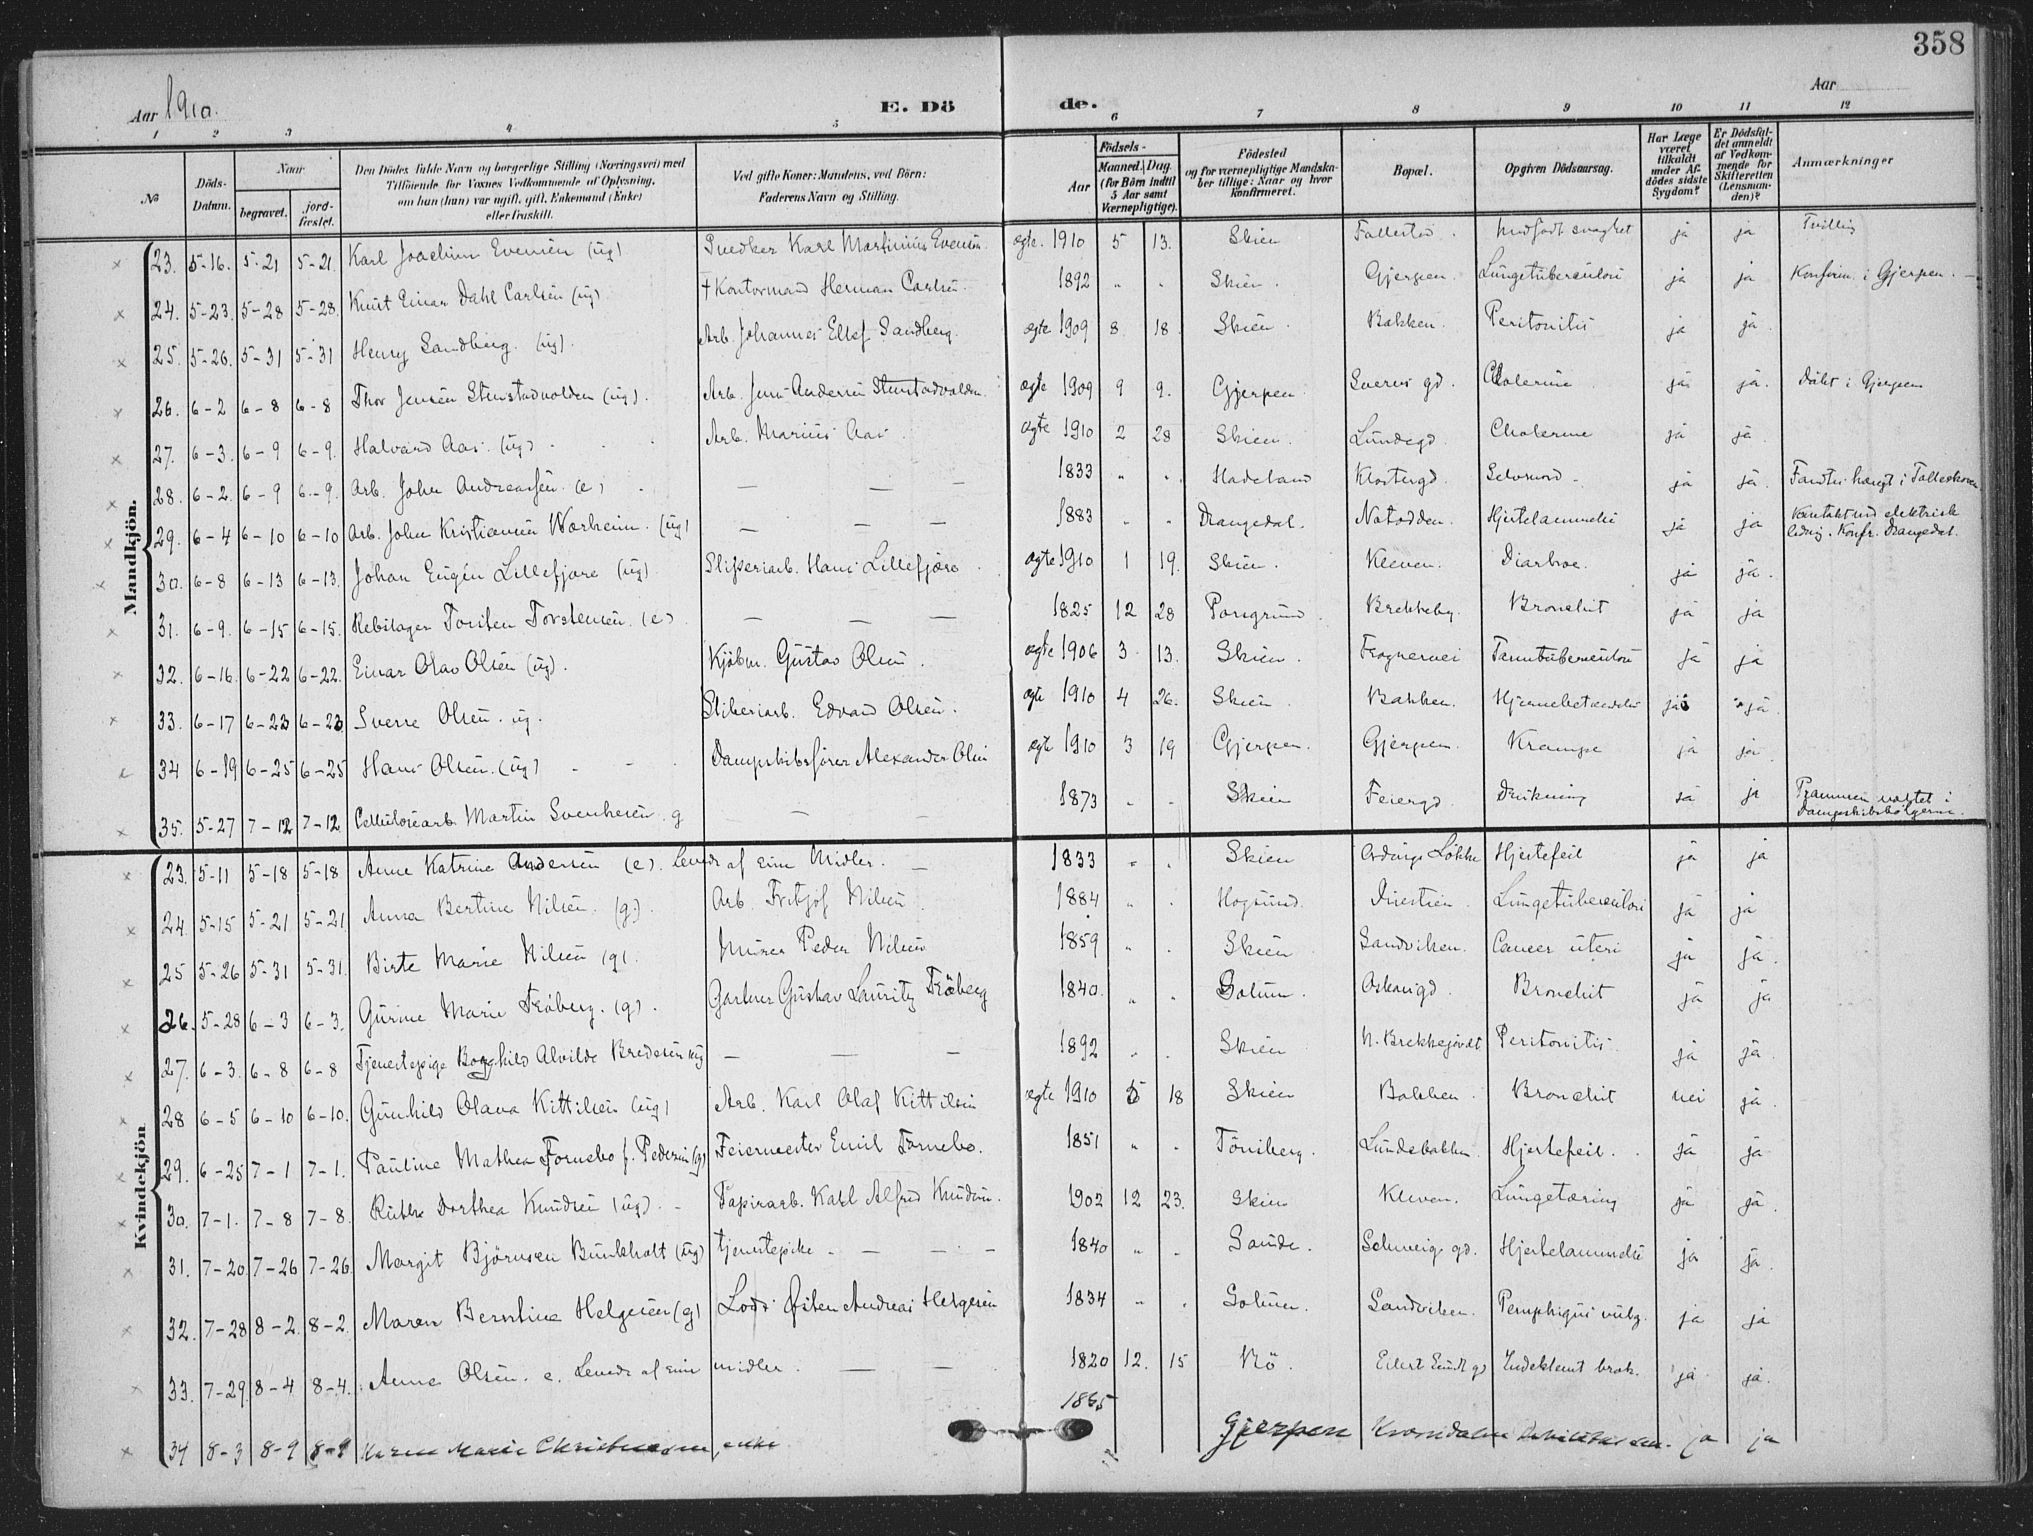 358
Aar 1910.
E. Dö de.
Aar
1 2 3 4 5 6 7 8 9 10 11 12
№
Döds-Datum.
Naar
begravet.
jord-fæstet.
Den Dödes fulde Navn og borgerlige Stilling (Næringsvei) med Tilföiende for Voxnes Vedkommende af Oplysning, om han (hun) var ugift, gift, Enkemand (Enke) eller fraskilt.
Ved gifte Koner: Mandens, ved Börn: Faderens Navn og Stilling.
Födsels-
Aar
Maaned. Dag.
(for Börn indtil 5 Aar samt Værnepligtige).
Födested og for værnepligtige Mandskaber tillige: Naar og hvor konfirmeret.
Bopæl.
Opgiven Dödsaarsag.
Har Læge været tilkaldt under Afdödes sidste Sygdom?
Er Dödsfaldet anmeldt af Vedkommende for Skifteretten (Lensmanden)?
Anmærkninger
Mandkjön.
23. 5-16. 5-21 5-21. Karl Joachim Evensen (ug) Snedker Karl Martinius Evensen. ægte. 1910 5 13. Skien Follestad. Medfødt svaghet ja ja Tvilling
24. 5-23. 5-28 5-28. Knut Einar Dahl Carlsen (ug) † Kontormand Herman Carlsen. 1892 " " Skien. Gjerpen. Lungetuberculose ja ja Konfirm. i Gjerpen.
25. 5-26. 5-31 5-31 Henry Sandberg. (ug). Arb. Johannes Ellef Sandberg. ægte 1909 8 18. Skien. Bakken. Peritonitis ja ja.
26. 6-2 6-8 6-8 Thor Jensen Stenstadvolden (ug). Arb. Jens Andersen Stenstadvolden. ægte 1909 9 9. Gjerpen. gd. Cholerine ja ja. Døbt i Gjerpen
27. 6-3. 6-9 6-9. Halvard Aas. (ug) Arb. Marius Aas. ægte 1910 2 28 Skien. Lundegd. Cholerine ja ja.
28. 6-2. 6-9 6-9. Arb. John Andreassen (e) — — — 1833 " " Hadeland Klostergd. Selvmord. ja ja. Fandtes hængt i
29. 6-4 6-10 6-10 Arb. John Kristiansen Warheim. (ug) — — — 1883 " " Drangedal. Notodden. Hjertelammelse ja ja Kontakt med elektrisk ledning. Konfr. Drangedal.
30. 6-8 6-13 6-13. Johan Eugén Lillefjære (ug) Sliperiarb. Hans Lillefjære. ægte 1910 1 19. Skien. Kleven. Diarhoe. ja ja.
31. 6-9. 6-15 6-15. Rebslager Torsten Torstensen. (e) — — — 1825 12 28 Porsgrund. Brekkeby. Bronchit ja ja
32. 6-16. 6-22 6-22. Einar Olav Olsen (ug). Kjøbm. Gustav Olsen. ægte 1906 3 13. Skien. Frognervei Tarmtuberculose ja ja
33. 6-17 6-23 6-23 Sverre Olsen. ug. Sliberiarb. Edvard Olsen. ægte 1910 4 26. Skien. Bakken. Hjernebetændelse ja ja
34 6-19 6-25 6-25 Hans Olsen. (ug) Dampskibsfører Alexander Olsen ægte 1910 3 19 Gjerpen. Gjerpen. Krampe ja ja
35. 5-27 7-12 7-12 Cellulosearb. Martin Svenkesen g — — 1873 " " Skien Feiergd. Drukning ja ja Prammen væltet i Dampskibsbølgerne.
Kvindekjön
23. 5-11 5-18 5-18 Anne Katrine Andersen (e). Lever af sine Midler. — 1833 " " Skien Løkke Hjertefeil ja ja
24. 5-15 5-21 5-21 Anna Bertine Nilsen. (g). Arb. Fritjof Nilsen. 1884 " " Hogsund. Lungetuberculose ja ja
25 5-26 5-31 5-31. Birte Marie Nilsen (g). Murer Peder Nilsen 1859 " " Skien Sandviken. Cancer uteri ja ja.
26. 5-28 6-3 6-3. Gurine Marie Fröberg. (g). Gartner Gustav Lauritz Fröberg 1840. " " Solum. Bronchit ja ja
27. 6-3. 6-8 6-8 Tjenestepige Borghild Alvilde Bredesen ug — — — 1892 " " Skien N. Brekkejordet Peritonitis ja ja.
28 6-5 6-10 6-10. Gunhild Olava Kittilsen (ug) Arb. Karl Olaf Kittilsen ægte 1910 5 18 Skien Bakken. Bronchit nei ja.
29. 6-25 7-1 7-1. Pauline Mathea Fornebo f. Pedersen (g) Feiermester Emil Fornebo. 1851 " " Tönsberg. Lundebakken. Hjertefeil. ja ja
30. 7-1. 7-8 7-8. Ruth Dorthea Knudsen (ug). Papirarb. Karl Alfred Knudsen. 1902 12 23. Skien Kleven. Lungetæring ja ja.
31. 7-20 7-26 7-26. Margit Björnsen Bunkholt (ug) tjenestepike — — — 1840 " " Saude. Schweigs gd. Hjertelammelse ja ja.
32. 7-28 8-2. 8-2. Maren Berntine Helgesen (g) Lods Østen Andreas Helgesen 1834 " " Solum. Sandviken. Pemphigus vulg. ja ja
33. 7-29. 8-4 8-4. Anne Olsen. e. Levede af sine midler. — — 1820 12. 15 Bö. Eilert Sundt gd Indeklemt brok. ja ja.
34 8-3 8-9 8-9 Karen Marie Christensen, enke 1865 Gjerpen ja ja